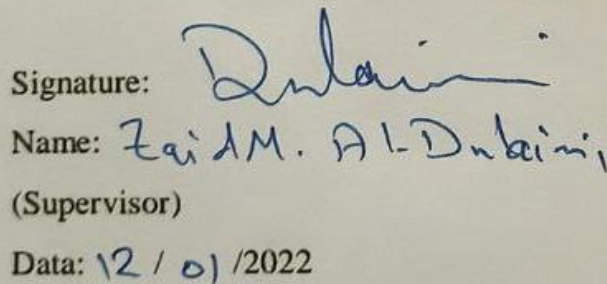 Signature: Dulaimi
Name: Zaid M. Al-Dulaimi
(Supervisor)
Data: 12 / 01 /2022